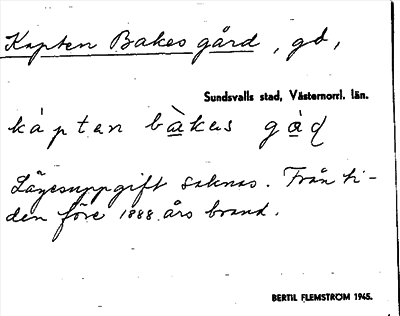 Kapten Bakes gård, gd,
Sundsvalls stad, Västernorrl. län.
kápten bà̱kas gà̱ɖ
Lägesuppgift saknas. Från ti-
den före 1888 års brand.
BERTIL FLEMSTRÖM 1945.